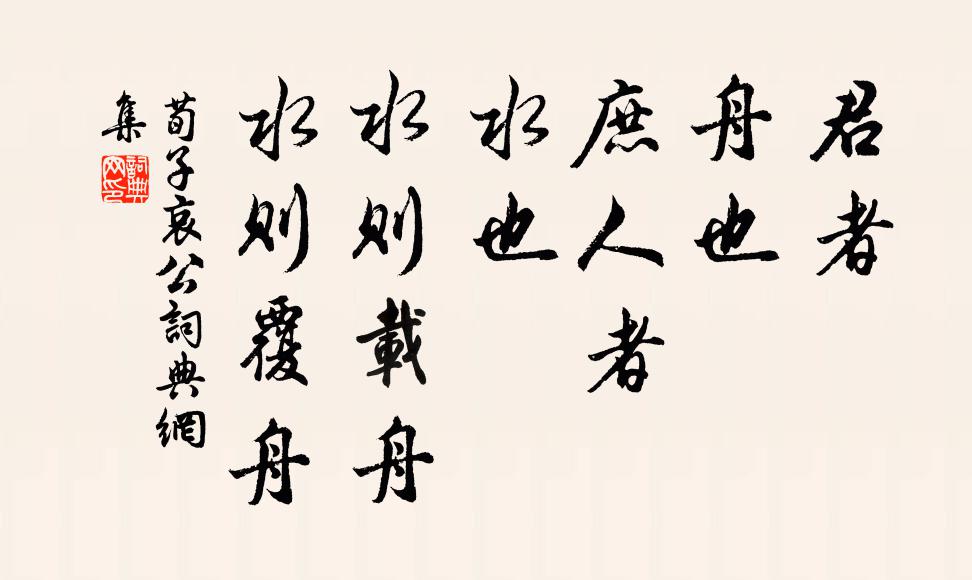 君者
舟也
庶人者
水也
水則載舟
水則覆舟
荀子哀公詞典網
集
詞典网印